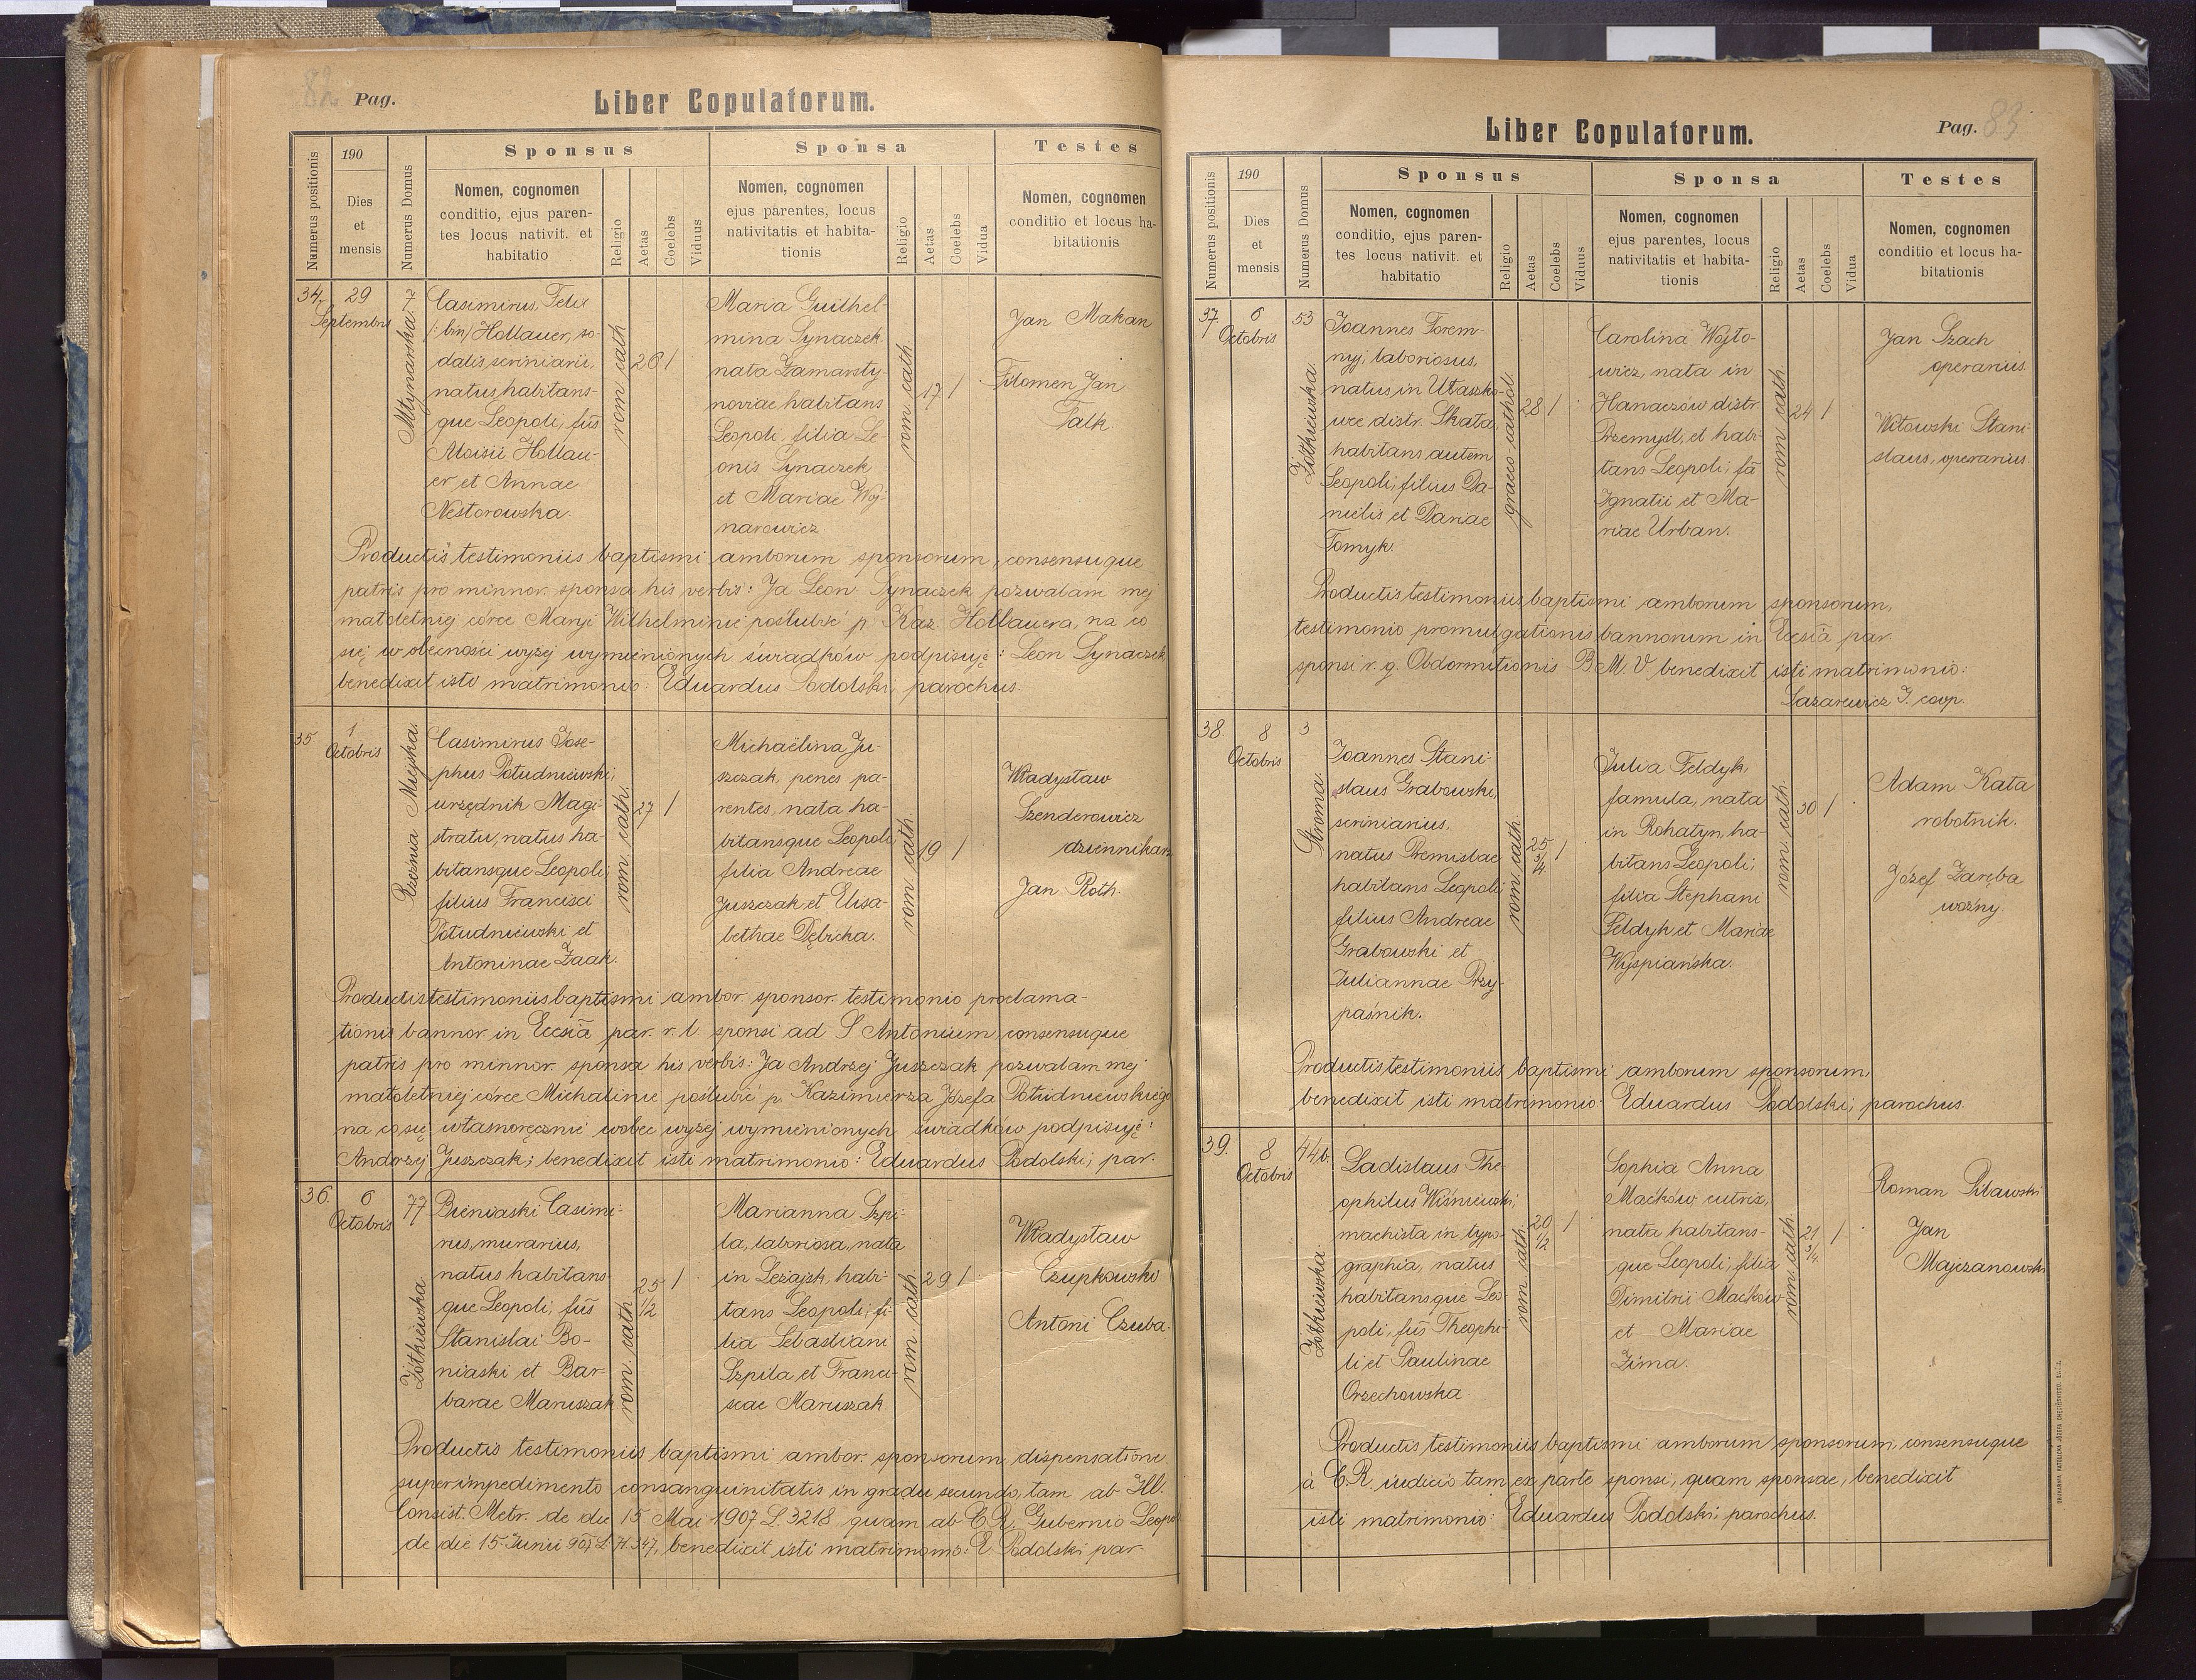 82 Pag.
Liber Copulatorum.
Numerus positionis
190
Dies
et
mensis
Numerus Domus
Sponsus
Nomen, cognomen
conditio, ejus paren-
tes locus nativit. et
habitatio
Religio
Aetas
Coelebs
Viduus
Sponsa
Nomen, cognomen
ejus parentes, locus
nativitatis et habita-
tionis
Religio
Aetas
Coelebs
Vidua
Testes
Nomen, cognomen
conditio et locus ha-
bitationis
34.
29
Septembris
Młynarska 7
Casimirus Felix
/:bin/ Hollauer, so-
dalis scriniarii,
natus habitans-
que Leopoli, fiūs
Aloisii Hollau-
er et Annae
Nestorowska.
rom. cath
26 1
Maria Guilhel-
mina Synaczek
nata Zamarsty-
noviae habitans
Leopoli, filia Le-
onis Synaczek
et Mariae Woj-
narowicz
rom. cath
17 1
Jan Makan
Filomen Jan
Falk.
Productis testimoniis baptismi amborum sponsorum, consensuque
patris pro minnor. sponsa his verbis: Ja Leon Synaczek pozwalam mej
małoletniej córce Marji Wilhelminie poślubić p. Kaz. Hollauera, na co
się w obecności wyżej wymienionych świadków podpisuję: Leon Synaczek
benedixit isto matrimonio: Eduardus Podolski, parochus.
35.
1
Octobris
Rzeźnia Miejska
Casimirus Jose-
phus Południewski,
urzędnik Magi-
stratu, natus ha-
bitansque Leopoli,
filius Francisci
Południewski et
Antoninae Żaak.
rom. cath.
27 1
Michaëlina Ju-
szczak, penes pa-
rentes, nata ha-
bitansque Leopoli,
filia Andreae
Juszczak et Elisa-
bethae Dębicka.
rom. cath
19 1
Władysław
Szenderowicz
dziennikarz
Jan Roth.
Productis testimoniis baptismi ambor. sponsor. testimonio proclama-
tionis bannor. in Eccsiā par. r. l. sponsi ad S. Antonium, consensuque
patris pro minnor. sponsa his verbis: Ja Andrzej Juszczak pozwalam mej
małoletniej córce Michalinie poślubić p. Kazimierza Józefa Południewskiego
na co się własnoręcznie wobec wyżej wymienionych świadków podpisuję:
Andrzej Juszczak; benedixit isti matrimonio: Eduardus Podolski, par.
36.
6
Octobris
77
Żółkiewska
Bieniaski Casimi-
rus, murarius,
natus habitans-
que Leopoli, fiūs
Stanislai Bo-
niaski et Bar-
barae Maruszak
rom. cath.
25 1/2 1
Marianna Szpi-
la, laboriosa, nata
in Leżajsk, habi-
tans Leopoli, fi-
lia Sebastiani
Szpila et Franci-
scae Maruszak
rom. cath
29 1
Władysław
Czupkowski
Antoni Czuba.
Productis testimoniis baptismi ambor. sponsorum, dispensatione
super impedimento consanguinitatis in gradu secundo, tam ab Ill.
Consist. Metr. de die 15 Mai 1907 L. 3218 quam ab C. R. Gubernio Leopo
de die 15. Junii 907 L. H. 347, benedixit isti matrimonio: E. Podolski par.
Liber Copulatorum.
Pag. 83
Numerus positionis
190
Dies
et
mensis
Numerus Domus
Sponsus
Nomen, cognomen
conditio, ejus paren-
tes locus nativit. et
habitatio
Religio
Aetas
Coelebs
Viduus
Sponsa
Nomen, cognomen
ejus parentes, locus
nativitatis et habita-
tionis
Religio
Aetas
Coelebs
Vidua
Testes
Nomen, cognomen
conditio et locus ha-
bitationis
37
6
Octobris
53
Żółkiewska.
Joannes Forem-
nyj, laboriosus,
natus in Utaszko-
wce distr. Skałat
habitans autem
Leopoli, filius Da-
nielis et Dariae
Tomyk.
graeco cathol.
28 1
Carolina Wojto-
wicz, nata in
Hanaczów distr
Przemyśl, et habi-
tans Leopoli, fā
Ignatii et Ma-
riae Urban.
rom. cath.
24 1
Jan Szach
operarius.
Witowski Stani-
slaus, operarius.
Productis testimoniis baptismi amborum sponsorum,
testimonio promulgationis bannorum in Eccsiā par.
sponsi r. g. Obdormitionis B. M. V. benedixit isti matrimonio:
Lazarewicz J. coop.
38.
8
Octobris
3
Stroma
Joannes Stani-
slaus Grabowski,
scriniarius,
natus Premislae
habitans Leopoli
filius Andreae
Grabowski et
Juliannae Przy-
paśnik.
rom. cath
25 3/4 1
Julia Feldyk,
famula, nata
in Rohatyn, ha-
bitans Leopoli;
filia Stephani
Feldyk et Mariae
Wyspiańska.
rom. cath.
30 1
Adam Kata
robotnik.
Józef Zaręba
woźny.
Productis testimoniis baptismi amborum sponsorum,
benedixit isti matrimonio: Eduardus Podolski, parochus.
39.
8
Octobris
44/b.
Żółkiewska
Ladislaus The-
ophilus Wiśniewski,
machista in typo-
graphia, natus
habitansque Leo-
poli, fiūs Theophi-
li et Paulinae
Orzechowska.
rom. cath.
20 1/2 1
Sophia Anna
Maćków, sutrix,
nata habitans-
que Leopoli, filia
Dimitrii Maćków
et Mariae
Zima.
rom. cath.
21 3/4 1
Roman Pilawski
Jan
Majzanowski
Productis testimoniis baptismi amborum sponsorum, consensuque
à C. R. iudicio tam ex parte sponsi, quam sponsae, benedixit
isti matrimonio: Eduardus Podolski, parochus.